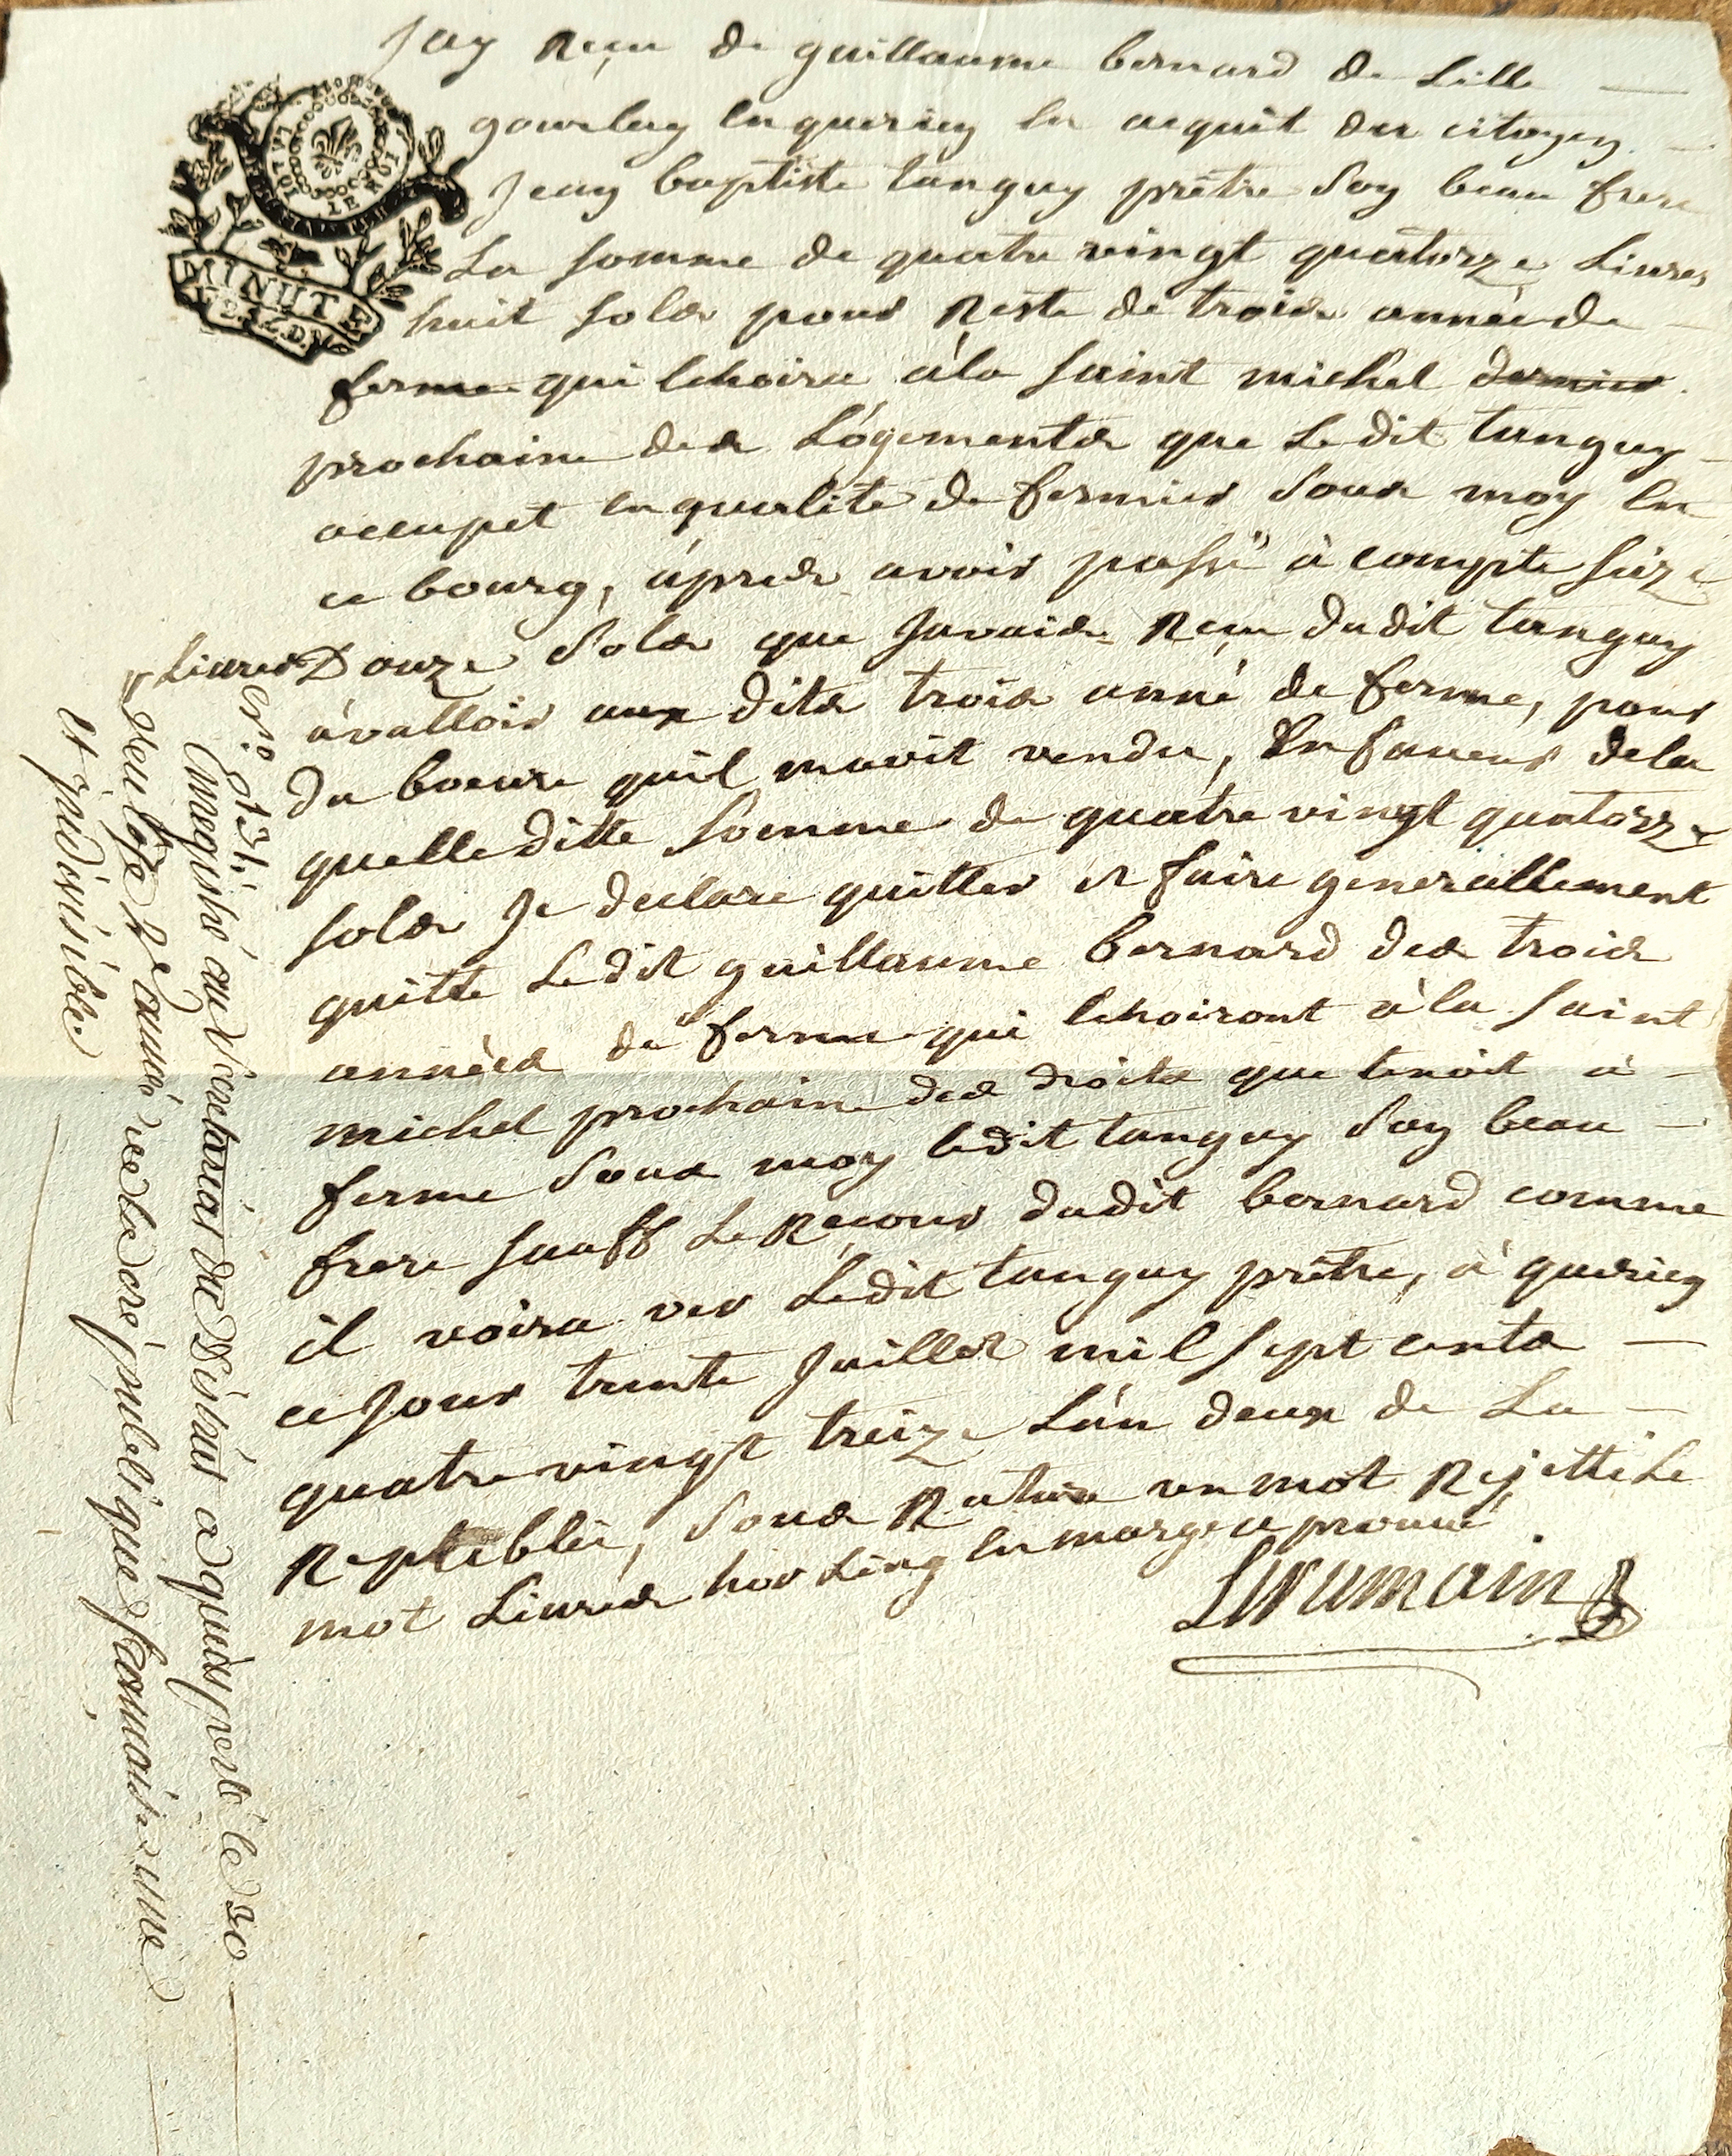 Jay Reçu de guillaume bernard de Lille
gourlay en querien en acquit du citoyen
Jean baptiste tanguy prêtre son beau frere
La somme de quatre vingt quatorze Livres
huit sols pour Reste de trois année de
ferme qui Echoira à la saint michel dernier
prochaine des Lógements que Le dit tanguy
occupet en qualité de fermier sous moy en
ce bourg, áprés avoir passé à compte seize
Livres Douze sols que Javais Reçu dudit tanguy
ávalloir aux dits trois anné de ferme, pour
du beure quil mavoit vendu, En faveur dela
quelle ditte somme de quatre vingt quatorze
sols Je declare quitter et faire generallement
quitte Le dit guillaume bernard des trois
années de ferme qui Echoiront à la saint
michel prochain des droits que tenoit à
ferme sous moy ledit tanguy son beau
frere sauff Le Recour dudit bernard comme
il voira ver Ledit tanguy prêtre, à querien
ce Jour trente Juillet mil sept cents
quatre vingt treize L'án deux de La
Republée, sous Rature un mot Rejetté Le
mot Livres hor Ling en marge aprouvé
Lauumain
MINUTE
LA LOI ET LE ROI
Enregistré au ... de District a quimperlé le 30
... 1793 2e de la république française une
et indivisible